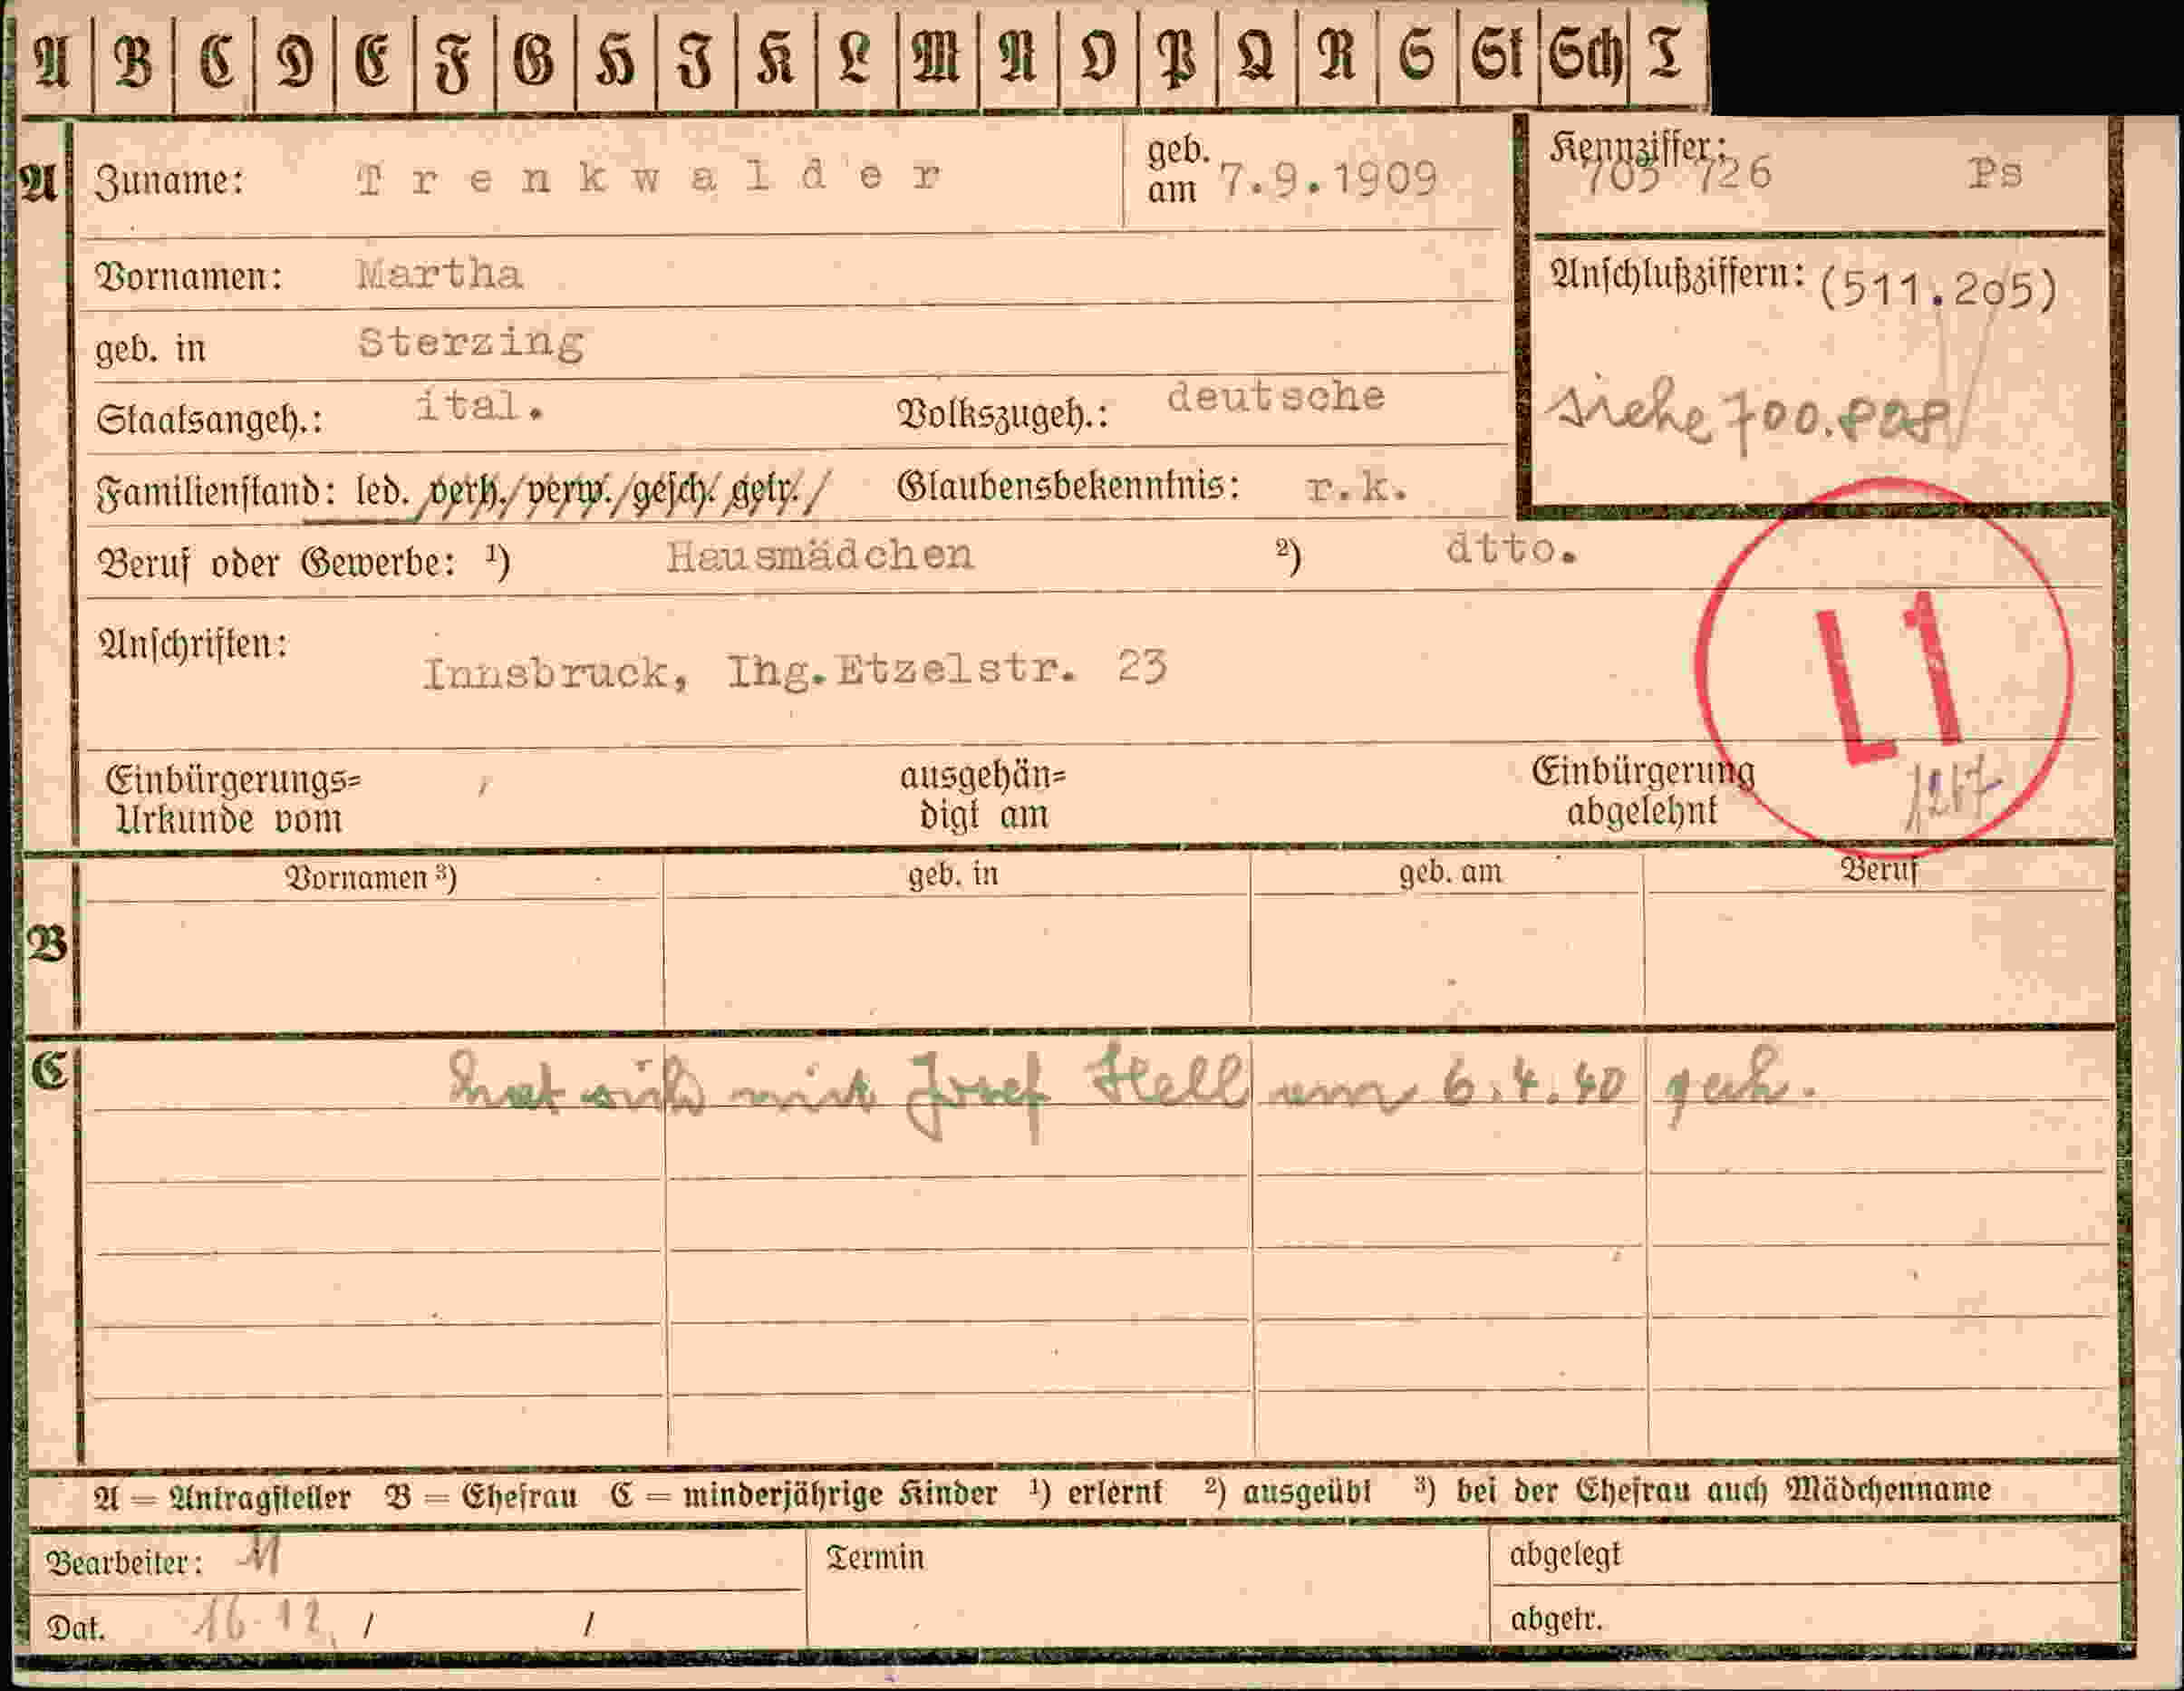 A B C D E F G H I K L M N O P Q R S St Sch T
A Zuname: Trenkwalder geb. am 7.9.1909 Kennziffer: 703 726 Ps
Vornamen: Martha Anschlußziffern: (511.205)
geb. in Sterzing
Staatsangeh.: ital. Volkszugeh.: deutsche siehe 700.828
Familienstand: led. verh./verw./gesch. getr./ Glaubensbekenntnis: r.k.
Beruf oder Gewerbe: ¹) Hausmädchen ²) dtto.
Anschriften: Innsbruck, Ing.Etzelstr. 23
L1
Einbürgerungs= ausgehän= Einbürgerung
Urkunde vom digt am abgelehnt
Vornamen ³) geb. in geb. am Beruf
B
C hat sich mit Josef Hell am 6.4.40
A = Antragsteller B = Ehefrau C = minderjährige Kinder ¹) erlernt ²) ausgeübt ³) bei der Ehefrau auch Mädchenname
Bearbeiter: M Termin abgelegt
Dat. 16.12. / / abgetr.